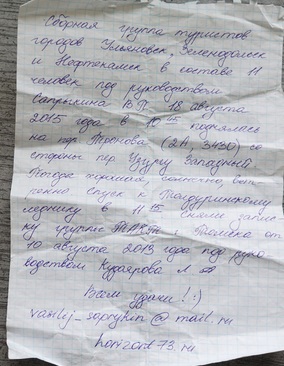 Сборная группа туристов
городов Ульяновск, Зеленодольск
и Нефтекамск в составе 11
человек под руководством
Сапрыкина В.П. 18 августа
2015 года в 10 45 поднялась
на пер. Тронова (2А, 3430) со
стороны пер Узуру Западный.
Погода хорошая, солнечно,
спуск к Талдуринскому
леднику в 11 15 сняли запис-
ку группы г. Томска от
10 августа 2013 года под руко
водством Кудаярова Л
Всем удачи! :)
vasilij_saprykin@mail.ru
horizont73.ru